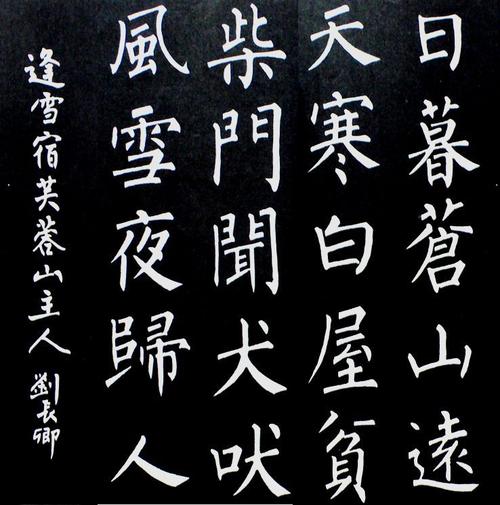 日暮蒼山遠
天寒白屋貧
柴門聞犬吠
風雪夜歸人
逢雪宿芙蓉山主人 劉長卿